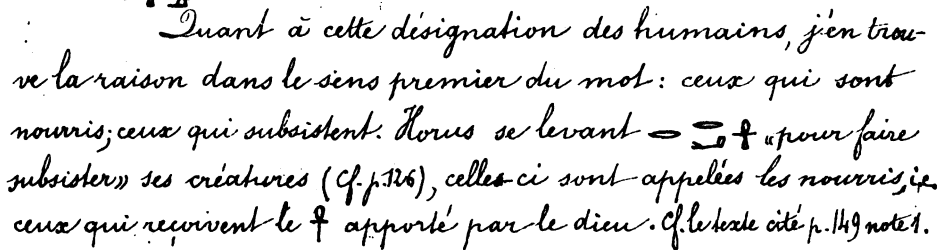 Quant à cette désignation des humains, j'en trou-
ve la raison dans le sens premier du mot : ceux qui sont
nourris; ceux qui subsistent. Horus se levant «pour faire
subsister» ses créatures (Cf. p. 126), celles-ci sont appelées les nourris, i.e.
ceux qui reçoivent le 𓋹 apporté par le dieu. Cf. le texte cité p. 149 note 1.